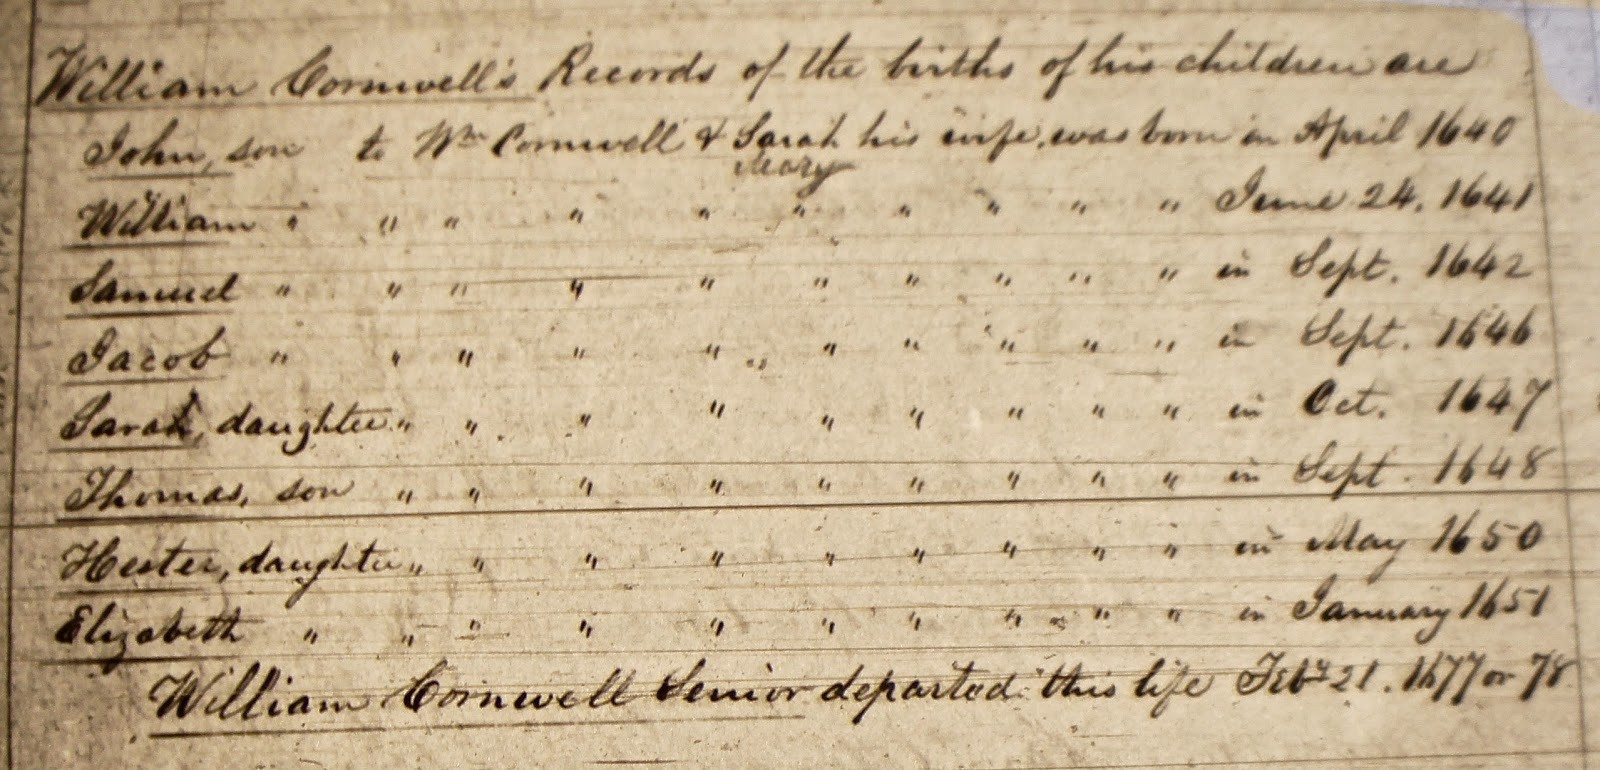 William Cornwell's Records of the births of his children are
John, son to Wm Cornwell & Sarah his wife, was born in April 1640
Mary
William " " " " " " " " " " June 24, 1641
Samuel " " " " " " " " " " in Sept. 1642
Jacob " " " " " " " " " " in Sept. 1646
Sarah, daughter " " " " " " " " " in Oct. 1647
Thomas, son " " " " " " " " " in Sept. 1648
Hester, daughter " " " " " " " " " in May 1650
Elizabeth " " " " " " " " " " in January 1651
William Cornwell Senior departed this life Feby 21. 1677 or 78